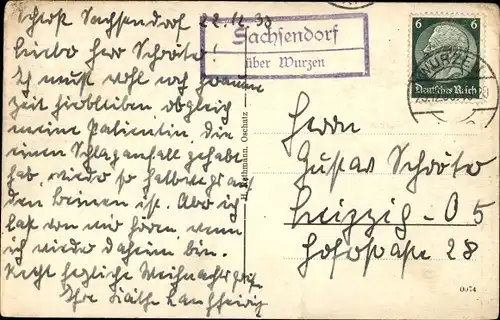 Schloß Sachsendorf 22.12.33
Lieber Herr Schröter!
Ich muß wohl noch
Zeit hierbleiben obgleich
meine Patientin, die
einen Schlaganfall gehabt
hab, wieder so halbwegs auf
den Beinen ist. Aber ich
laß von mir hören, wenn
ich wieder daheim bin.
Recht herzliche Weihnachtsgrüße
Ihre Käthe
Sachsendorf
über Wurzen
6 6
Deutsches Reich
WURZEN
Herrn
Gustav Schröter
Leipzig - O 5
Hofstraße 28
Oschatz
0074